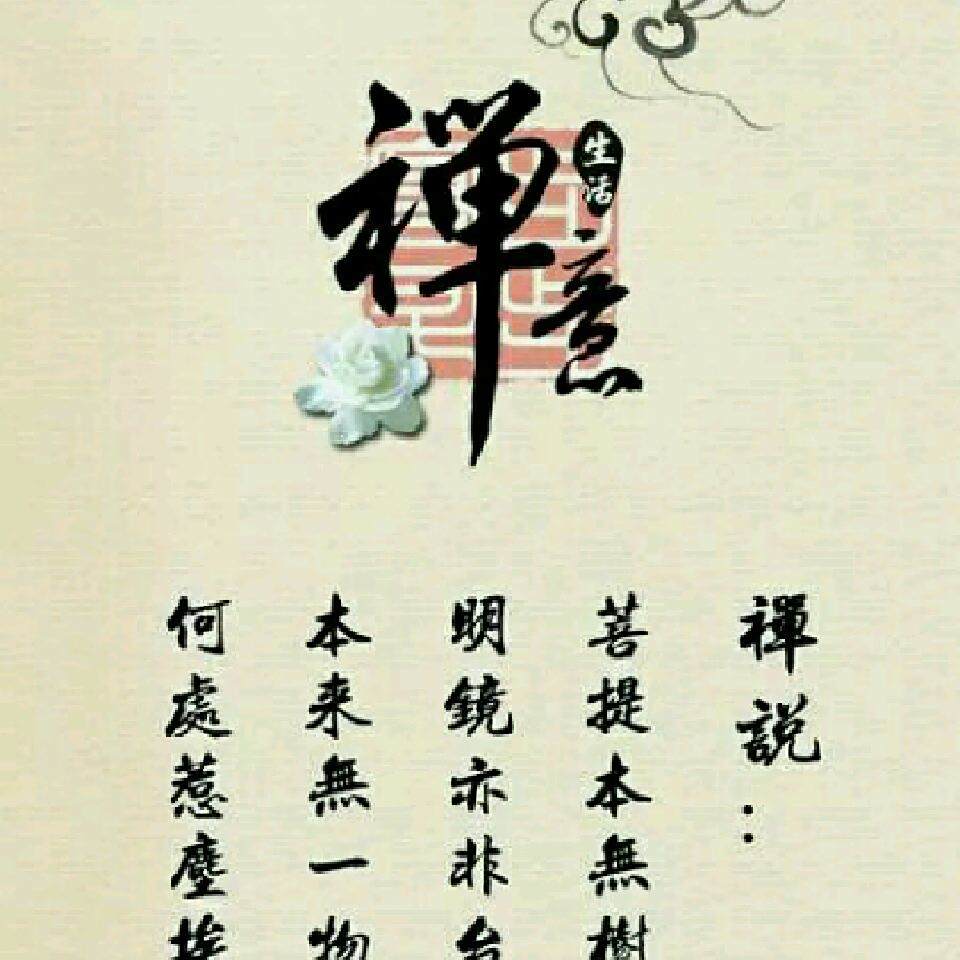 禪意
生活
禪說：
菩提本無樹
明鏡亦非台
本来無一物
何處惹塵埃